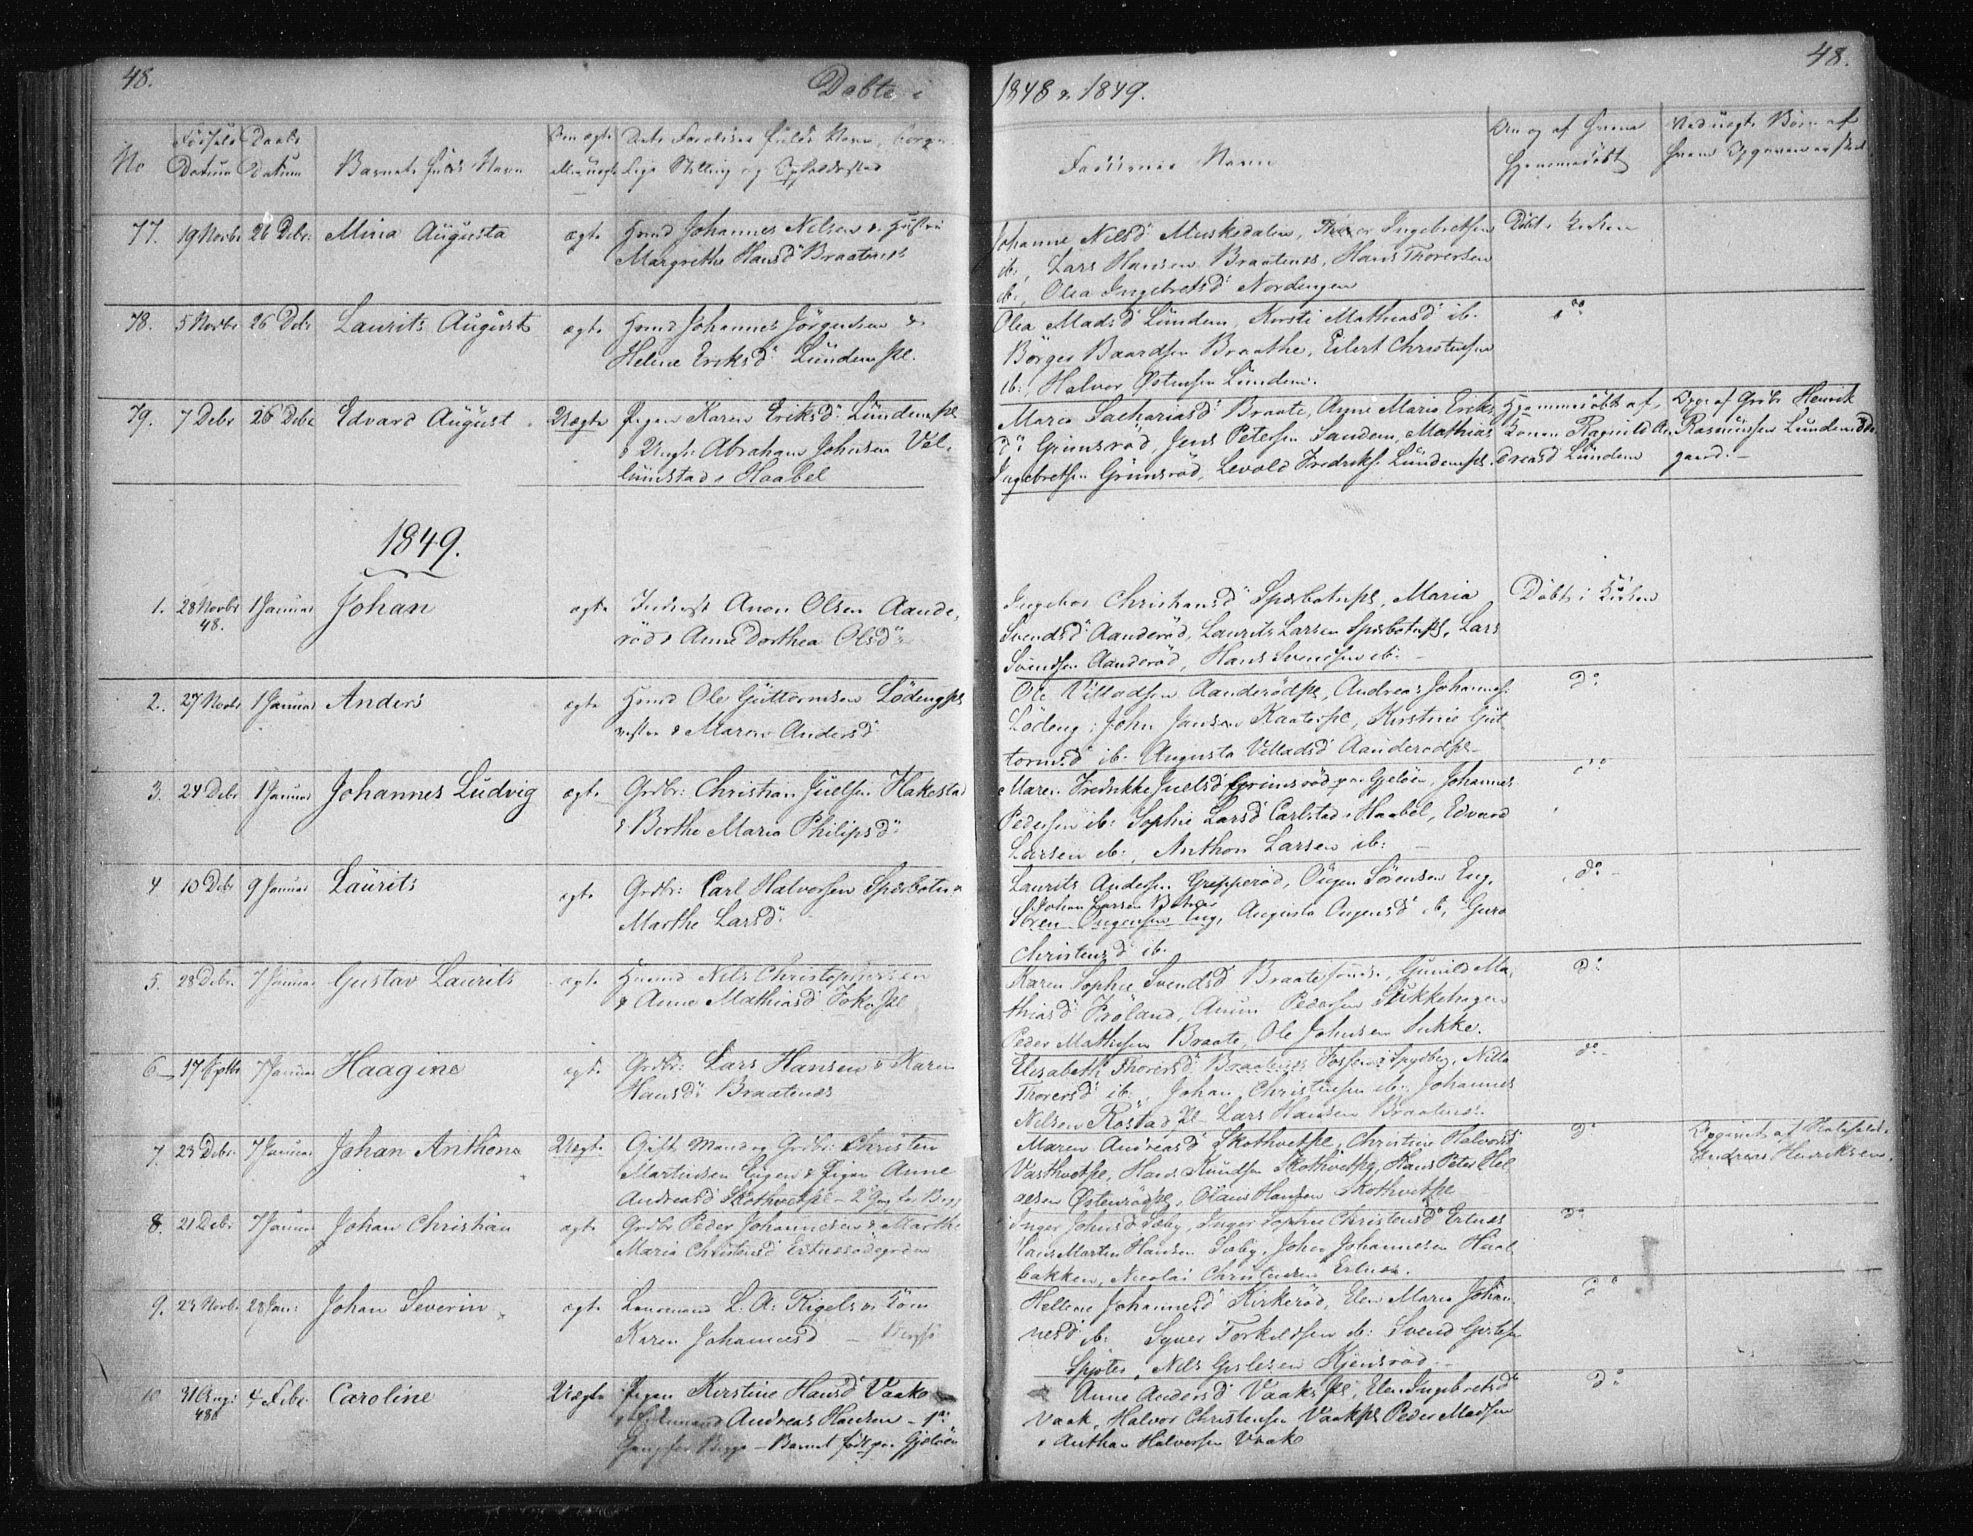 48.
Døbte i
1848 & 1849.
48.
No
Fødsels Datum
Daabs Datum
Barnets fulde Navn
Om ægte eller uægte
Dets Forældres fulde Navn, borger-
lige Stilling og Opholdssted
Faddernes Navn
Om og af hvem
hjemmedøbt
Ved uægte Børn af
77. 19 Novbr 26 Debr. Mina Augusta ægte Hmd Johannes Nilsen & Hustru
Margrethe Hansd Braatenes
Johanne Nilsd Muskedalen, Ingebretsen
ib., Lars Hansen Braatenes, Hans Thorersen
ib., Olea Ingebretsd Nordengen
Døbt i Kirken
78. 5 Novbr 26 Debr Laurits August ægte Hmd Johannes Jørgensen &
Helene Eriksd Lundem pl.
Olea Madsd Lundem, Kirsti Mathiasd ib.
Børger Baardsen Braathe, Eilert Christensen
ib., Halvor Østensen Lundem.
do
79. 7 Debr 26 Debr Edvard August Uægte Pigen Karen Eriksd Lundempl
& Ungk. Abraham Johnsen Vol-
lumstad i Haabel
Maren Sachariasd Braate, Anne Maria Eriks
do Grimsrød, Jens Petersen Sandem, Mathias
Ingebretsen Grimsrød, Levold Fredriks. Lundempl.
Hjemmedøbt af
Konen Ragnild An
dreasd Lundem
Opg. af Grdbr Henrik
Rasmussen Lundem Øde
gaard.
1849.
1. 28 Novbr 48. 1 Januar Johan ægte Inderst Anon Olsen Aande-
rød & Anne Dorthea Olsd
Ingebor Christiansd Spærbotnpl, Maria
Svendsd Aanderød, Laurits Larsen Spærbotnpl, Lars
Svendsen Aanderød, Hans Svendsen ib.
Døbt i Kirken
2. 27 Novbr 1 Januar Anders ægte Hmd Ole Guttormsen Lødengpl
vestre & Maren Andersd
Ole Villadsen Aanderødpl, Andreas Johannes.
Lødeng, John Jansen Kaaterpl, Kirstine Gut
tormsd ib. Augusta Villadsd Aanderødpl
do
3. 24 Debr 1 Januar Johannes Ludvig ægte Grdbr: Christian Juelsen Hakestad
& Berthe Maria Philipsd
Maren Fredrikke Juelsd Grimsrød paa Gjeløen, Johannes
Pedersen ib. Sophie Larsd Carlstad i Haabøl, Edvard
Larsen ib., Anthon Larsen ib.
do
4. 10 Debr 9 Januar Laurits ægte Grdbr: Carl Halvorsen Spærbotn &
Marthe Larsd
Laurits Andersen Grepperød, Ougen Sørensen Eng,
Johan Larsen
Søren Ougensen Eng, Augusta Ougensd ib, Guro
Christensd ib.
do
5. 28 Debr. 7 Januar Gustav Laurits ægte Hmd Nils Christophersen
& Anne Mathiasd Folke pl
Karen Sophie Svendsd Braate, Gunild Ma
thiasd Frøland, Anun Pedersen Sukkehagen
Peder Mathisen Braate, Ole Johnsen Sukke.
do
6 17 Septbr 7 Januar Haagine ægte Grdbr: Lars Hansen & Karen
Hansd Braatenes
Elisabeth Thorersd Braatenes Fossen i Spydbg, Nilla
Thorersd ib., Johan Christensen ib., Johannes
Nilsen Røstad pl. Lars Hansen Braatenes.
do
7. 23 Debr. 7 Januar Johan Anthon Uægte Gift Mand og Grdbr: Christen
Martinsen Engen & Pigen Anne
Andreasd Skothvetpl – 2 Gang for Begge
Maren Andreasd Skothvetpl, Christine Halvorsd
Vasthvetpl, Hans Knudsen Skothvetpl, Hans Peter
Østenrødpl, Olaus Hansen Skothvetpl
do
Opgivet af
Andreas Henriksen
8. 21 Debr 7 Januar Johan Christian ægte Grdbr Peder Johannesen & Marthe
Maria Christensd Ertnesødegarden
Inger Johnsd Sæby, Inger Sophie Christensd Ertnes
Hans Martin Hansen Sæby, Johan Johannesen Haal
bakken, Nicolai Christensen Ertnes.
do
9. 23 Novbr. 28 Jan: Johan Severin ægte Lensmand L. A. Rigels
Karen Johannesd
Hellene Johannesd Kirkerød, Elen Maria Johan
nesd ib. Syver Torkildsen ib. Svend Gislesen
Spjøter, Nils Gislesen Kjensrød
do
10 31 Aug: 48 4 Febr. Caroline Uægte Pigen Kirstine Hansd Vaak
& Andreas Hansen – 1ste
Gang for Begge – Barnet født paa Gjeløen
Anne Andersd Vaakspl, Elen Ingebretsd
Vaak, Halvor Christensen Vaakpl Peder Madsen
& Anthon Halvorsen Vaak
do